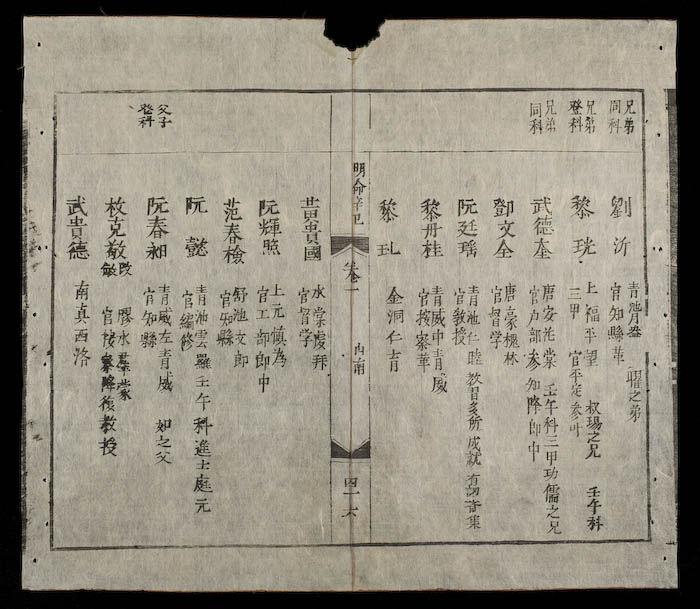 兄弟
同科
劉沂
青池
官知縣革
耀之弟
兄弟
登科
黎珖
上福平望
三甲 官平定參叶
叔瑒之兄 壬午科
兄弟
同科
武德奎
唐安花棠 壬午科三甲功儒之兄
官户部參知降郎中
鄧文全
唐豪
官督學
阮廷瑤
青池仁睦教習多所成就有
官教授
黎丹桂
青威中青威
官按察革
黎
金洞仁育
明命辛巳
卷一
南
四十六
黃貴國
水棠虔拜
官督學
阮輝照
上元慎為
官工部郎中
范春檢
舒池文郎
官知縣
阮懿
青池雲羅壬午科進士庭元
官編修
父子
登科
阮春昶
青威左青威 如之父
官知縣
枚克敬
改敏
膠水群蒙
官按察降復教授
武貴德
南真西洛